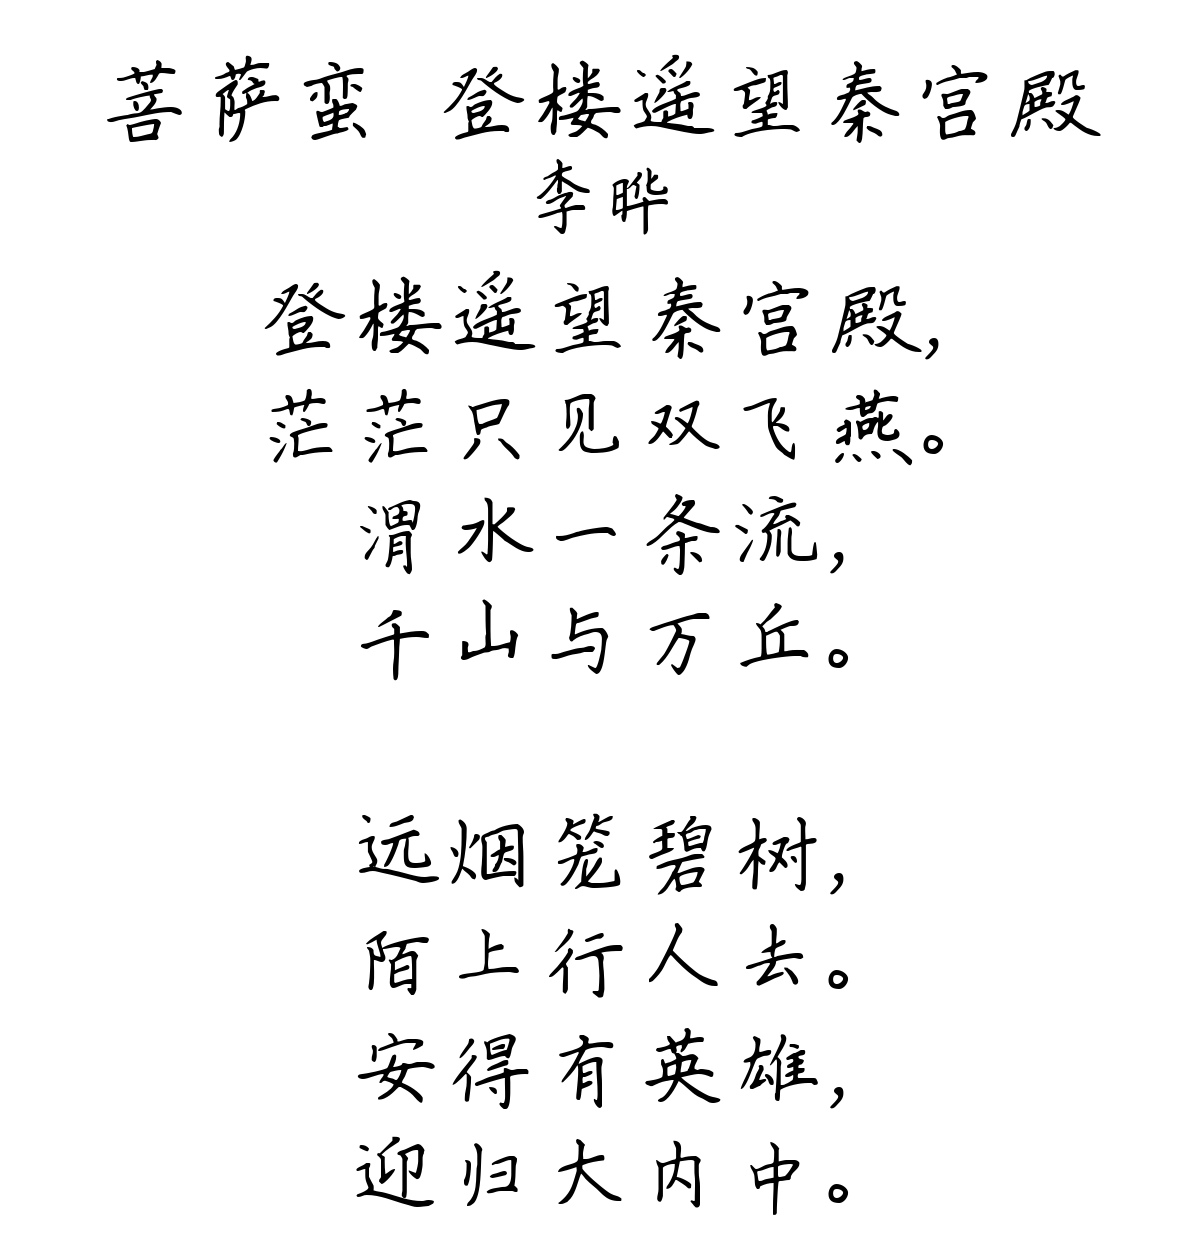 菩萨蛮 登楼遥望秦宫殿
李晔
登楼遥望秦宫殿,
茫茫只见双飞燕。
渭水一条流,
千山与万丘。
远烟笼碧树,
陌上行人去。
安得有英雄,
迎归大内中。